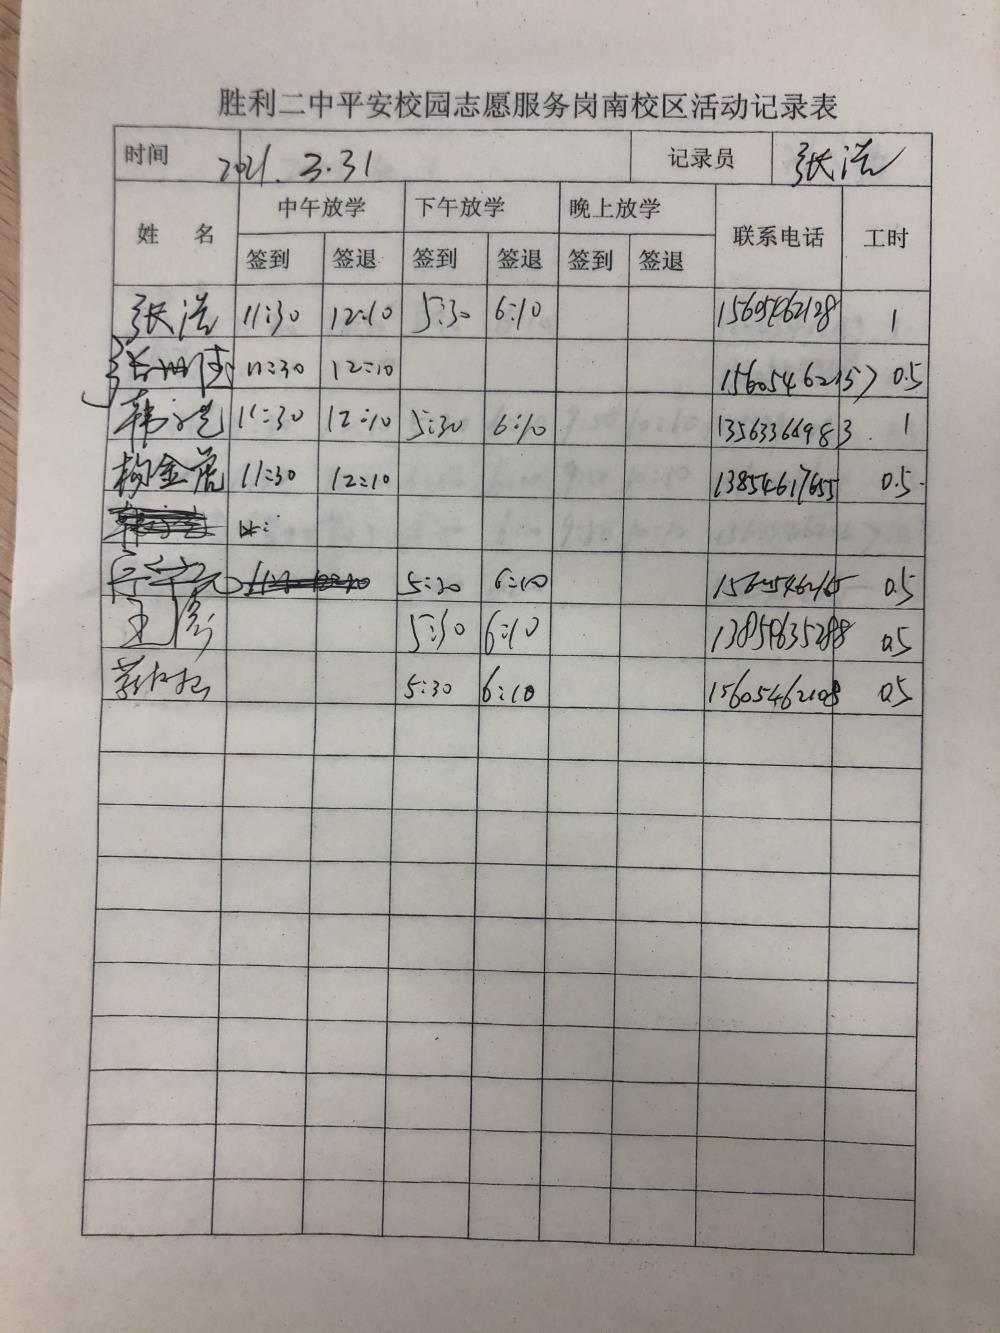 胜利二中平安校园志愿服务岗南校区活动记录表
时间 2021.3.31 记录员 张浩
姓 名 中午放学 下午放学 晚上放学 联系电话 工时
签到 签退 签到 签退 签到 签退
张浩 11:30 12:10 5:30 6:10 15605462128 1
11:30 12:10 15605462157 0.5
韩 11:30 12:10 5:30 6:10 13563366983 1
金虎 11:30 12:10 13854617655 0.5
5:30 6:10 0.5
王彦 5:30 6:10 13854635288 0.5
5:30 6:10 15605462108 0.5